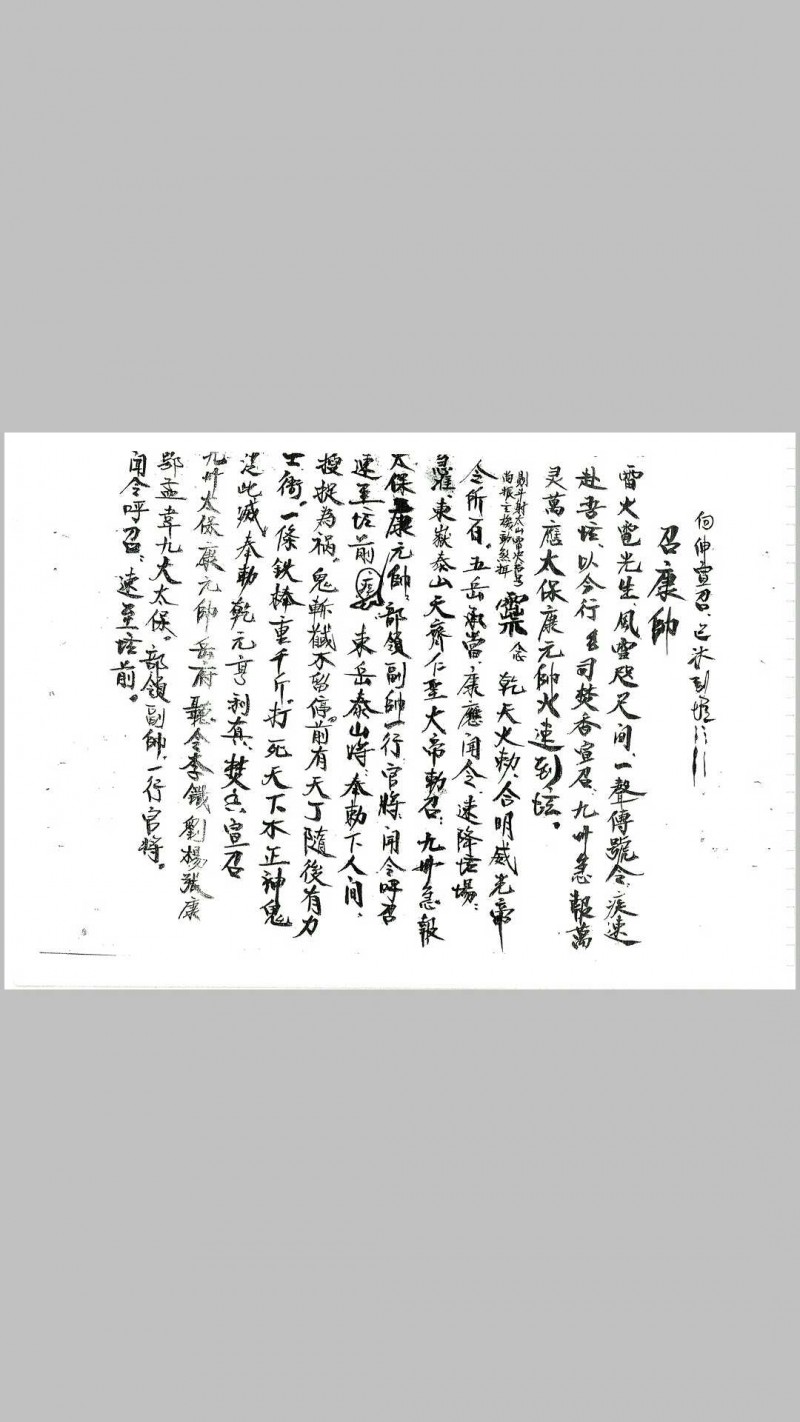 伺伸宣召、已来到壇
召康帥
雷火電光生、風雲咫尺间、一聲傳號令、疾速
赴吾坛、以今行王司焚香宣召、九州急報萬
灵萬應太保康元帅火速到坛。
剔斗射太山
念 乾天火勅、合明威光帝
令所召。五岳承當、康應闻令、速降坛場、
東嶽泰山天齊仁聖大帝勅召、九州急報
太保康元帅、部領副帥一行官將、闻令呼召
速至坛前 東岳泰山將、奉勅下人间、
捉為禍。鬼斬截不留停。前有天丁隨後有力
士衛。一條鉄棒重千斤。打死天下不正神鬼
此滅、奉勅乾元亨利貞、焚香宣召
九州太保康元帅岳府聽令李鐵劉楊張康
鄂孟韋九大太保。部領副帥、一行官將。
闻令呼召、速至坛前。